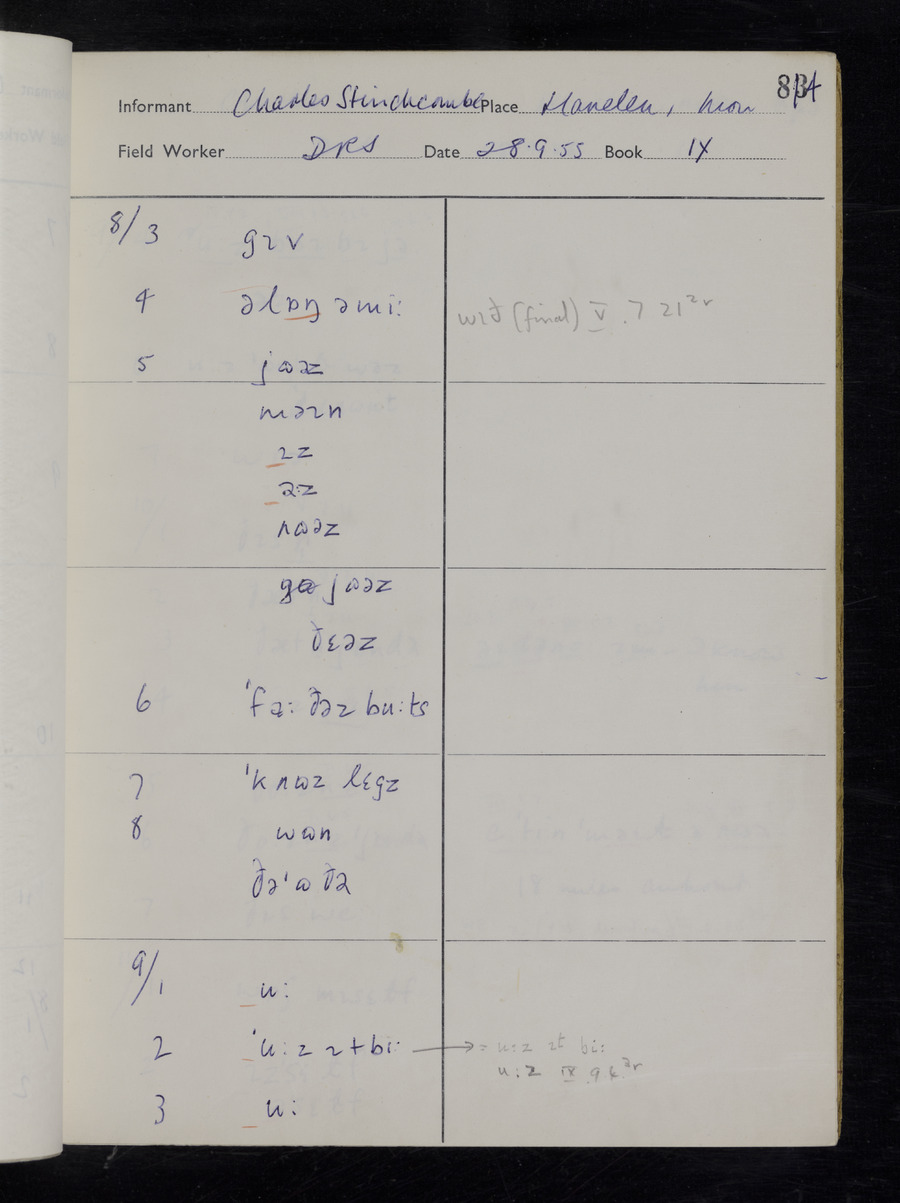 814
Informant Charles Stinchcombe Place Llanellen, Mon
Field Worker DRS Date 28.9.55 Book IX
8/3 gɪv
4 əlɒŋ əmi: wɪð (final) V .7 21
5 jɷəz
məɪn
ɪz
ə:z
ɷəz
jɷəz
ðɛəz
6 ˈfa: ðəz bu:ts
7 ˈk nɷz lɛgz
8 wɷn
ðəˈɷðə
9/1 u:
2 ˈu: z ɪt bi: → = u:z ɪt bi:
u:z IX 9
3 u: